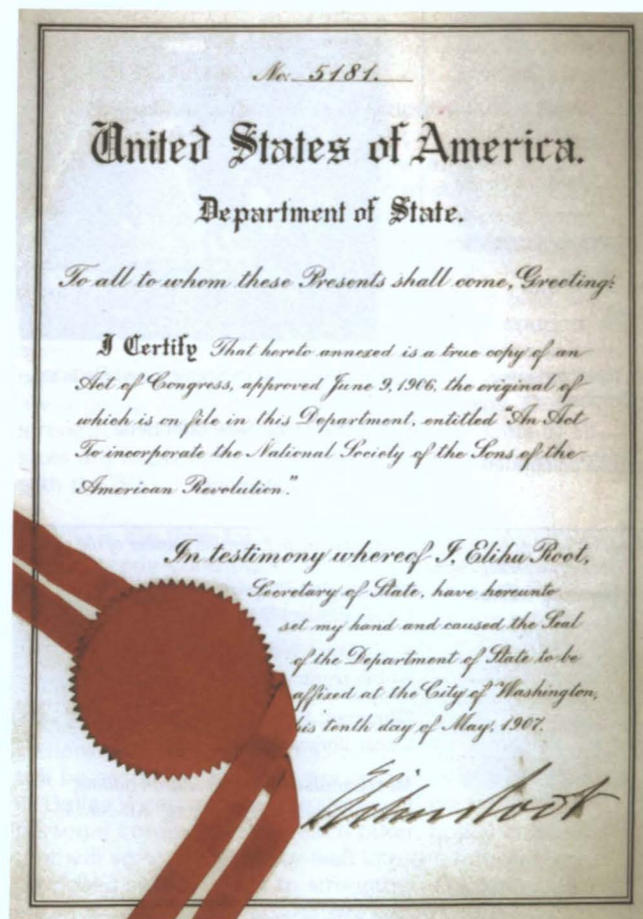 No. 5181.
United States of America.
Department of State.
To all to whom these Presents shall come, Greeting:
I Certify That hereto annexed is a true copy of an
Act of Congress, approved June 9, 1906, the original of
which is on file in this Department, entitled "An Act
To incorporate the National Society of the Sons of the
American Revolution."
In testimony whereof I, Elihu Root,
Secretary of State, have hereunto
set my hand and caused the Seal
of the Department of State to be
affixed at the City of Washington,
his tenth day of May, 1907.
Elihu Root